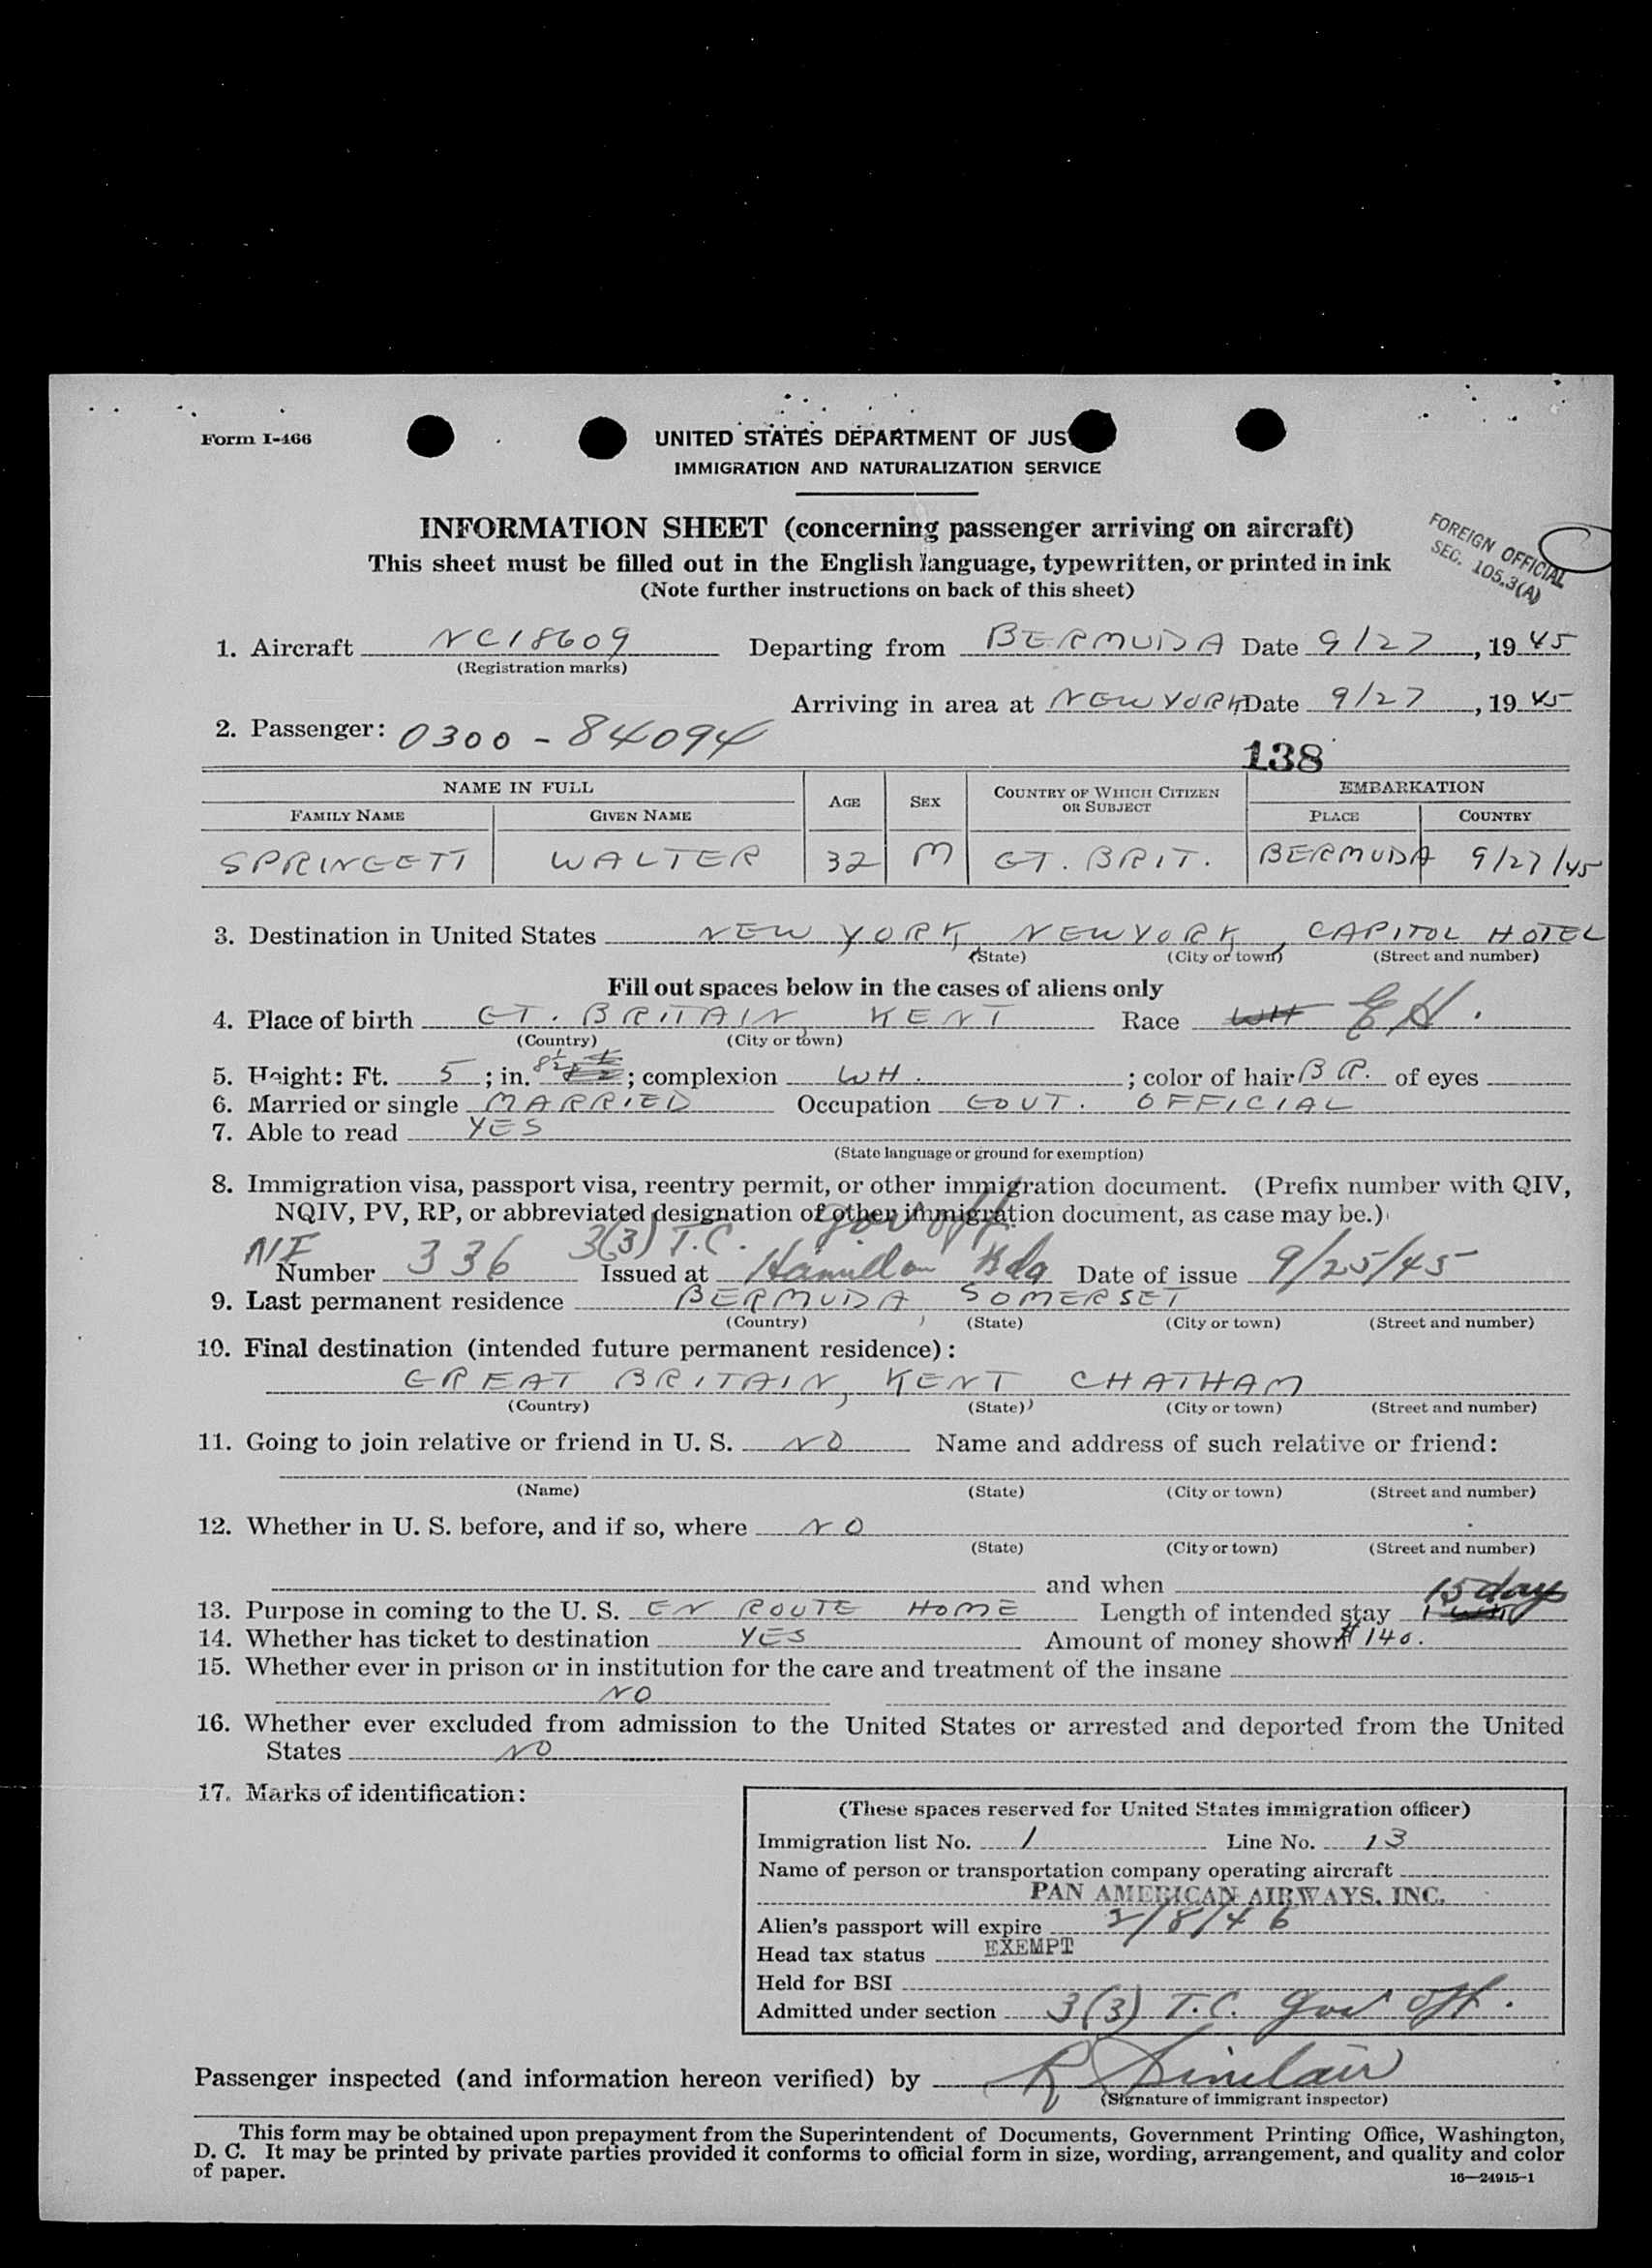 Form I-466
UNITED STATES DEPARTMENT OF JUS
IMMIGRATION AND NATURALIZATION SERVICE
INFORMATION SHEET (concerning passenger arriving on aircraft)
This sheet must be filled out in the English language, typewritten, or printed in ink
(Note further instructions on back of this sheet)
FOREIGN OFFICIAL
SEC. 105.3(A)
1. Aircraft NC18609 Departing from BERMUDA Date 9/27, 1945
(Registration marks)
Arriving in area at NEW YORK Date 9/27, 1945
2. Passenger: 0300-84094
138
NAME IN FULL AGE SEX COUNTRY OF WHICH CITIZEN OR SUBJECT EMBARKATION
FAMILY NAME GIVEN NAME PLACE COUNTRY
SPRINGETT WALTER 32 M GT. BRIT. BERMUDA 9/27/45
3. Destination in United States NEW YORK, NEW YORK, CAPITOL HOTEL
(State) (City or town) (Street and number)
Fill out spaces below in the cases of aliens only
4. Place of birth GT. BRITAIN, KENT Race WH EH.
(Country) (City or town)
5. Height: Ft. 5; in. 8½; complexion WH.; color of hair BR. of eyes
6. Married or single MARRIED Occupation GOVT. OFFICIAL
7. Able to read YES
(State language or ground for exemption)
8. Immigration visa, passport visa, reentry permit, or other immigration document. (Prefix number with QIV,
NQIV, PV, RP, or abbreviated designation of other immigration document, as case may be.)
NI 3(3) T.C. gov off.
Number 336 Issued at Hamilton Bda Date of issue 9/25/45
9. Last permanent residence BERMUDA, SOMERSET
(Country) (State) (City or town) (Street and number)
10. Final destination (intended future permanent residence):
GREAT BRITAIN, KENT CHATHAM
(Country) (State) (City or town) (Street and number)
11. Going to join relative or friend in U. S. NO Name and address of such relative or friend:
(Name) (State) (City or town) (Street and number)
12. Whether in U. S. before, and if so, where NO
(State) (City or town) (Street and number)
and when
13. Purpose in coming to the U. S. EN ROUTE HOME Length of intended stay 15 days
14. Whether has ticket to destination YES Amount of money shown $140.
15. Whether ever in prison or in institution for the care and treatment of the insane
NO
16. Whether ever excluded from admission to the United States or arrested and deported from the United
States NO
17. Marks of identification:
(These spaces reserved for United States immigration officer)
Immigration list No. 1 Line No. 13
Name of person or transportation company operating aircraft
PAN AMERICAN AIRWAYS, INC.
Alien's passport will expire 2/8/46
Head tax status EXEMPT
Held for BSI
Admitted under section 3(3) T.C. gov off.
Passenger inspected (and information hereon verified) by R Sinclair
(Signature of immigrant inspector)
This form may be obtained upon prepayment from the Superintendent of Documents, Government Printing Office, Washington,
D. C. It may be printed by private parties provided it conforms to official form in size, wording, arrangement, and quality and color
of paper.
16—24915-1